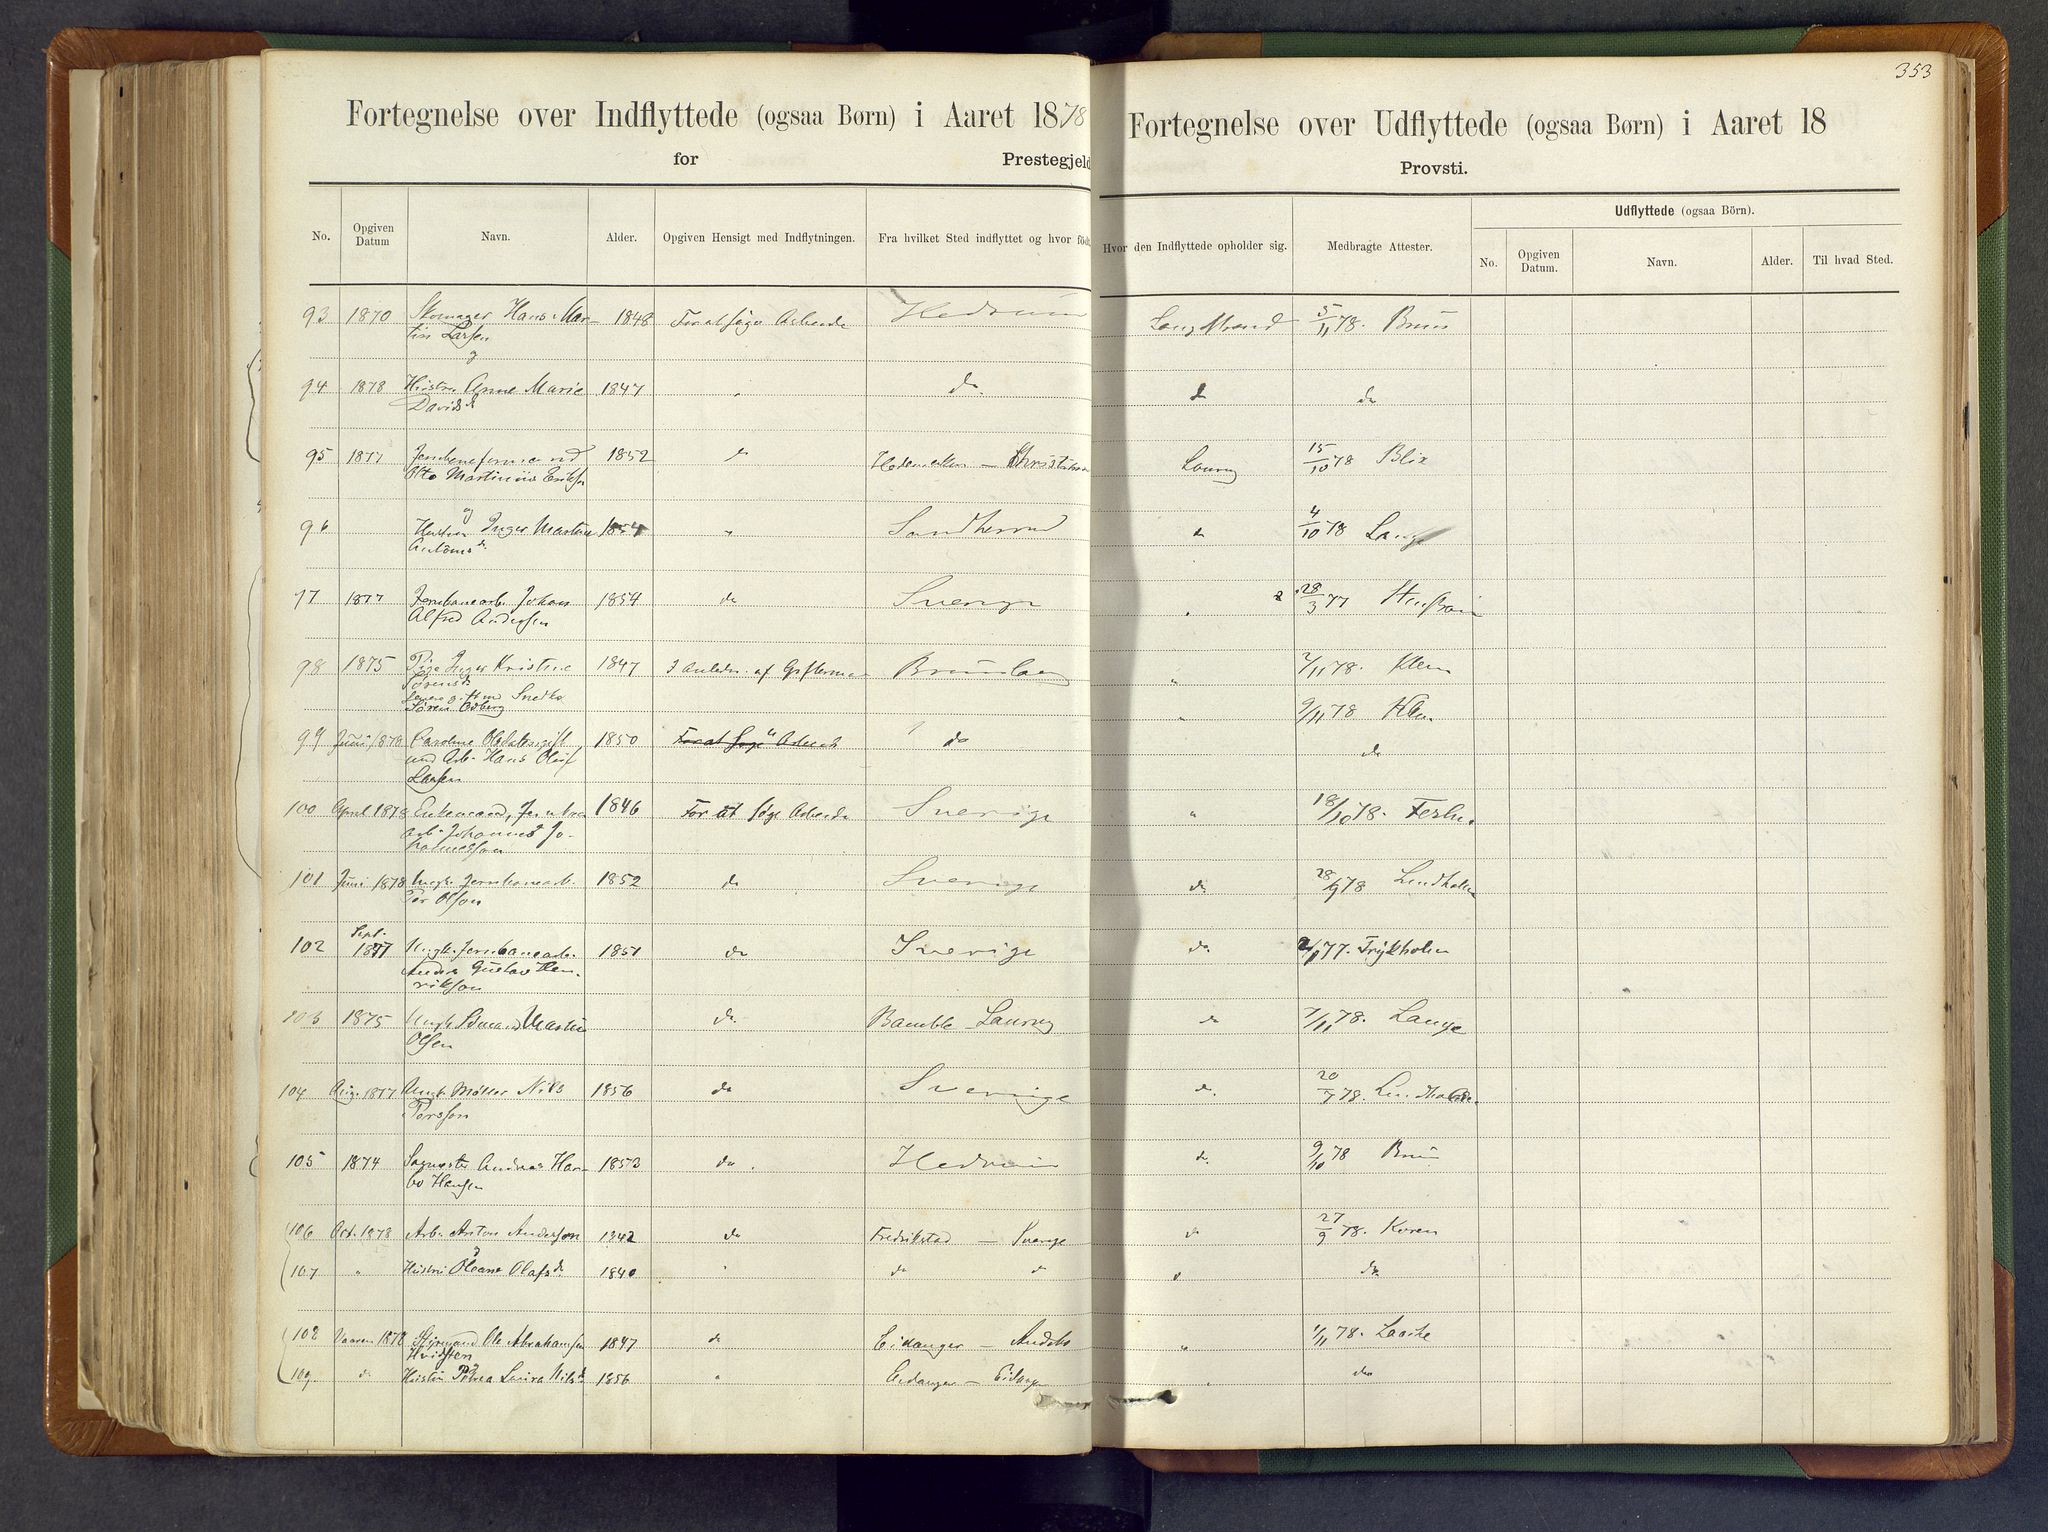 353
Fortegnelse over Indflyttede (ogsaa Børn) i Aaret 1878
for Prestegjeld
Fortegnelse over Udflyttede (ogsaa Børn) i Aaret 18
Provsti.
No. Opgiven Datum Navn. Alder. Opgiven Hensigt med Indflytningen. Fra hvilket Sted indflyttet og hvor född. Hvor den Indflyttede opholder sig. Medbragte Attester.
Udflyttede (ogsaa Börn).
No. Opgiven Datum. Navn. Alder. Til hvad Sted.
93 1870 Skomager Hans Mar- 1848 For at søge Arbeide Hedrum Langestrand 5/11 78. Bruun
tin Larsen
og
94 1878 Hustru Anne Marie 1847 " do. d do
Davidsd
95 1877 1852 do Hedemarken — Christiania Laurvig 15/10 78 Blix
Otto Martinius Eriksen
og
96 Hustru Inger Martine 1854 " Sandherred do 4/10 78 Lange
Antonsd
97 1877 Jernbanearb. Johan 1854 do Sverige " 28/3 77
Alfred Andersen
98 1875 Pige Inger Kristine 1847 I Anledn. af Gifterm Brunlaes " 7/11 78. Klem
Sørensd
gift m Snedker
Søren Asberg " 9/11 78 Klem
99 Juni 1878 Caroline Olsdatter gift 1850 For at søge Arbeide do do
med Arb. Hans Oluf
Larsen
100 April 1878 Enkemand, Jernbane 1846 For at søge Arbeide Sverige " 18/10 78.
arb. Johannes Jo-
hannesson
101 Juni 1878 Ungk. Jernbanearb. 1852 do Sverige do 28/9 78 Lindholm
Per Olson
102 Sept. 1877 Ungk. Jernbanearb. 1851 do Sverige do. 77. Frykholm
Anders Gustav Hen-
rikson
103 1875 Ungk. Sömand Martin do. Bamble - Laurvig do 7/11 78. Lange
Olsen
104 Aug. 1877 Ungk. Möller Nils 1856 do Sverige d. 20/7 78. Lindholm.
Persson
105 1874 Andreas Har- 1853 do. Hedrum d. 9/10 78 Bruun
bo Hansen
106 Oct. 1878 Arb. Anton Anderson 1842 do Fredrikstad — Sverige do 27/9 78. Koren
og
107 " Hustru Oleane Olafsd. 1840 " do do d do.
108 Vaaren 1878 Styrmand Ole Abrahamsen 1847 do Eidanger — " 1/11 78. Laache
Hvidsten
og
109 do Hustru Petrea Laura Nilsd 1856 " Eidanger — Eidanger " do